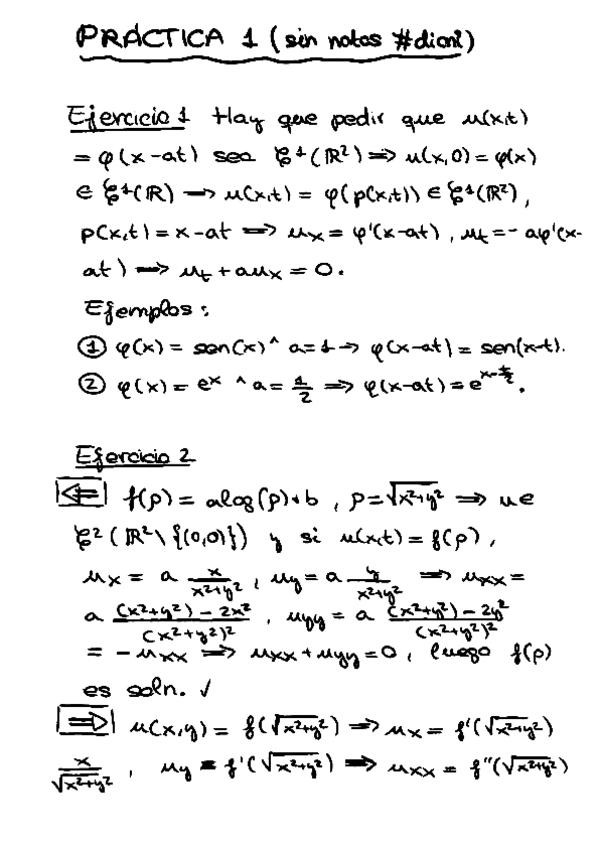 PRÁCTICA 1 (sin notas #dioni)
Ejercicio 1 Hay que pedir que u(x,t)
= φ(x-at) sea C¹(ℝ²) ⇒ u(x,0) = φ(x)
∈ C¹(ℝ) → u(x,t) = φ(p(x,t)) ∈ C¹(ℝ²),
p(x,t) = x-at ⇒ uₓ = φ'(x-at), u_t = -aφ'(x-
at) ⇒ u_t + auₓ = 0.
Ejemplos:
① φ(x) = sen(x) ^ a=1 → φ(x-at) = sen(x-t).
② φ(x) = eˣ ^ a = 1/2 ⇒ φ(x-at) = e^(x-t/2).
Ejercicio 2
⇐ f(ρ) = alog(ρ)+b, ρ=√(x²+y²) ⇒ u∈
C²(ℝ²\{(0,0)}) y si u(x,t) = f(ρ),
uₓ = a x/(x²+y²), u_y = a y/(x²+y²) ⇒ uₓₓ =
a ((x²+y²)-2x²)/(x²+y²)², u_yy = a ((x²+y²)-2y²)/(x²+y²)²
= -uₓₓ ⇒ uₓₓ + u_yy = 0, luego f(ρ)
es soln. ✓
⇒ u(x,y) = f(√(x²+y²)) ⇒ uₓ = f'(√(x²+y²))
x/√(x²+y²), u_y = f'(√(x²+y²)) ⇒ uₓₓ = f''(√(x²+y²))